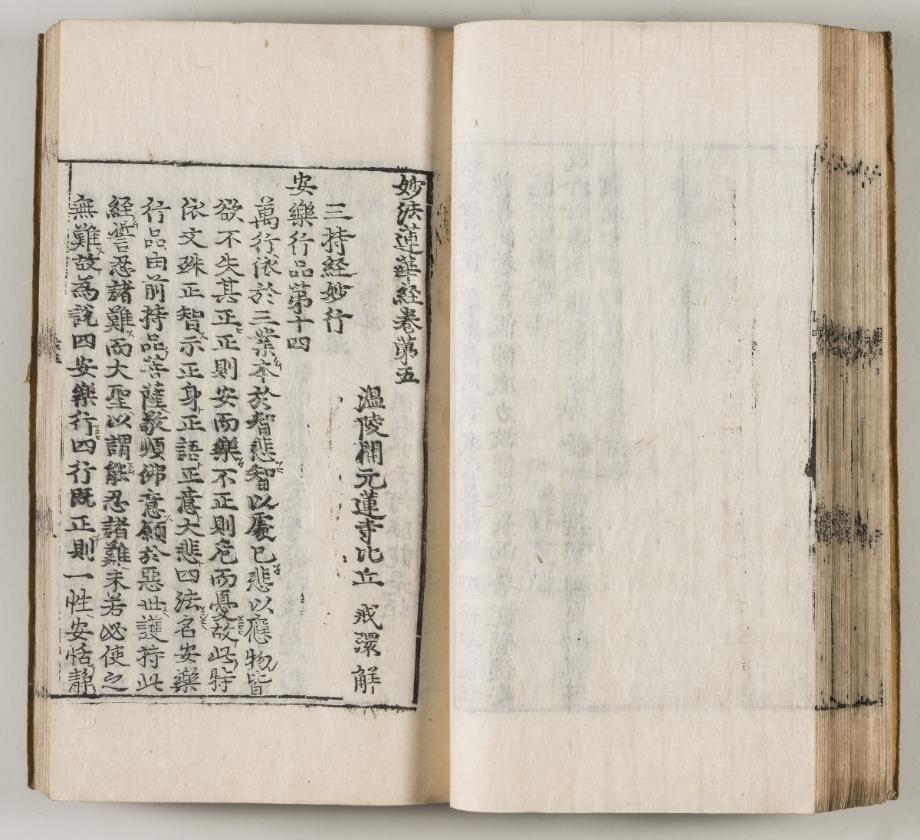 妙法蓮華経卷第五
溫陵開元蓮寺比丘 戒環 解
三持経妙行
安樂行品第十四
萬行依於三業本於智悲智以處已悲以應物皆
欲不失其正正則安而樂不正則危而憂故此特
依文殊正智示正身正語正意大悲四法名安樂
行品由前持品菩薩敬順佛意願於惡世護持此
経誓忍諸難而大聖以謂能忍諸難未若必使之
無難故為說四安樂行四行旣正則一性安恬靜